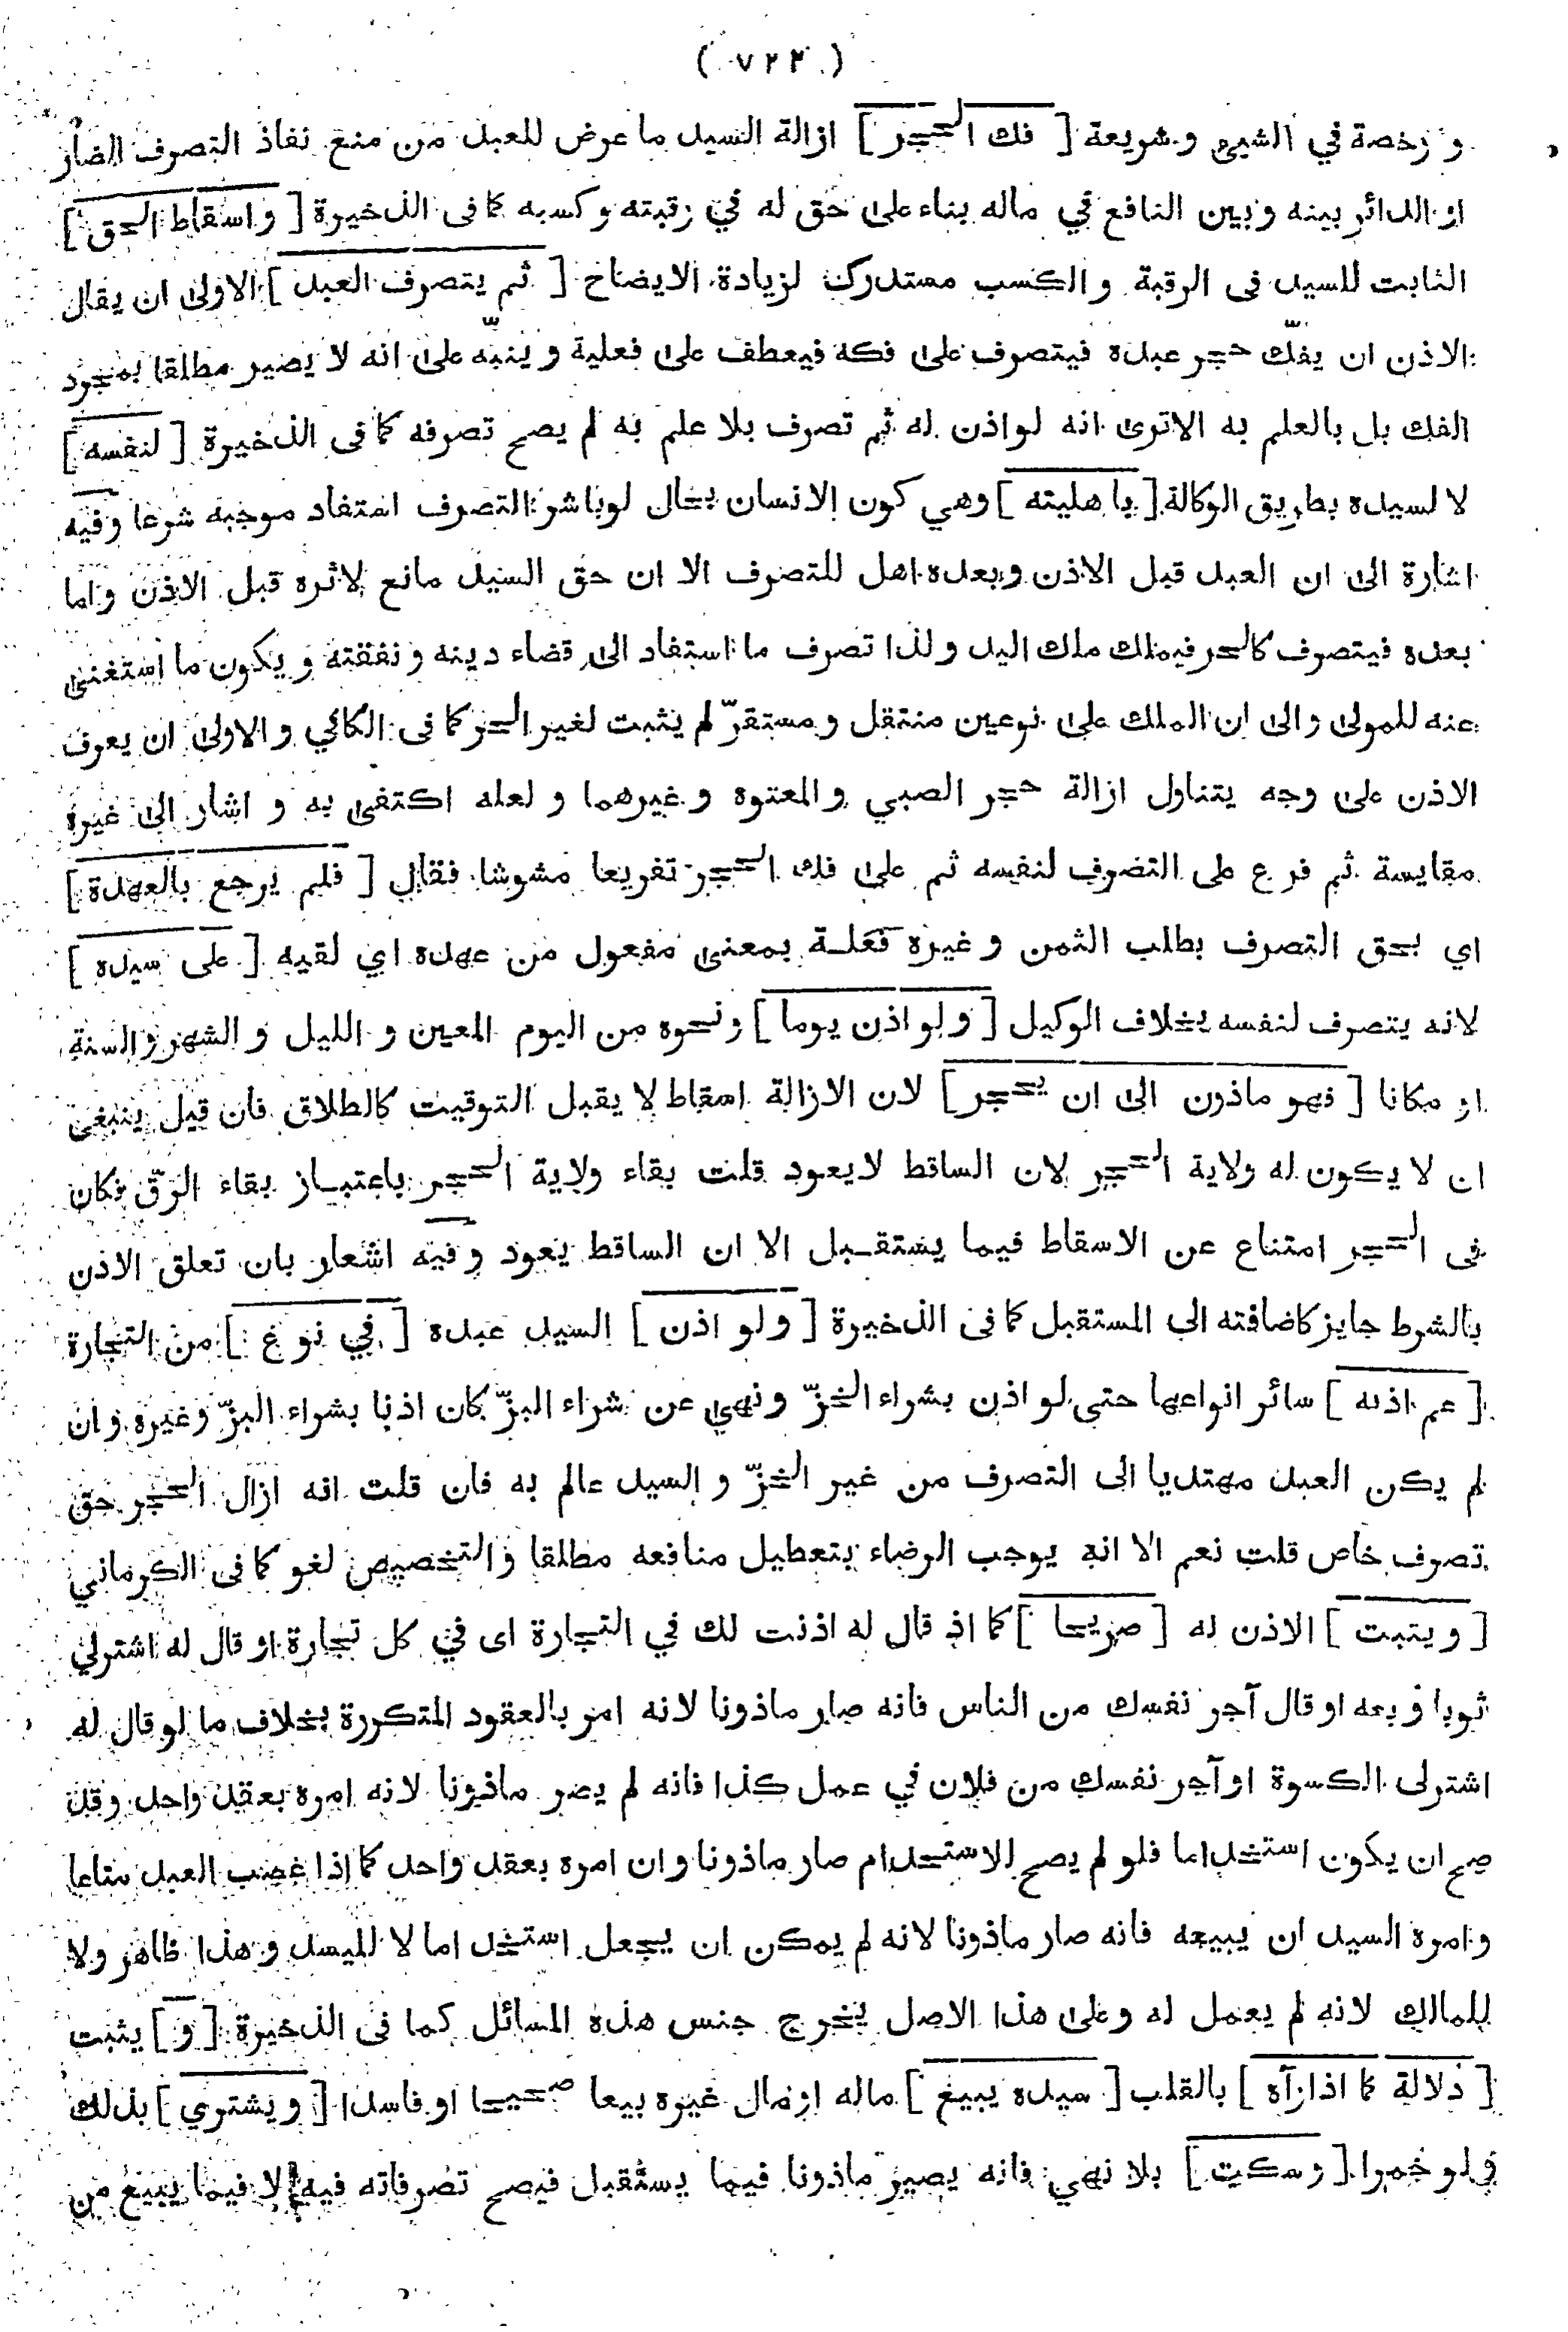 ( ٧٢٢ )
و رخصة في الشيئ و شريعة [ فك الحجر ] ازالة السيد ما عرض للعبد من منع نفاذ التصرف الضار
او الدائر بينه و بين النافع في ماله بناء على حق له في رقبته و كسبه كما فى الذخيرة [ و اسقاط الحق ]
الثابت للسيد فى الرقبة و الكسب مستدرك لزيادة الايضاح [ ثم يتصرف العبد ] الاولى ان يقال
الاذن ان يفكّ حجر عبده فيتصرف على فكه فيعطف على فعلية و ينبّه على انه لا يصير مطلقا بمجرد
الفك بل بالعلم به الاترى انه لو اذن له ثم تصرف بلا علم به لم يصح تصرفه كما فى الذخيرة [ لنفسه ]
لا لسيده بطريق الوكالة [ باهليته ] وهي كون الانسان بحال لو باشر التصرف استفاد موجبه شرعا و فيه
اشارة الى ان العبد قبل الاذن و بعده اهل للتصرف الا ان حق السيد مانع لاثره قبل الاذن و اما
بعده فيتصرف كالحر فيملك ملك اليد و لذا تصرف ما استفاد الى قضاء دينه و نفقته و يكون ما استغنى
عنه للمولى و الى ان الملك على نوعين منتقل و مستقرّ لم يثبت لغير الحر كما فى الكافي و الاولى ان يعرف
الاذن على وجه يتناول ازالة حجر الصبي و المعتوه و غيرهما و لعله اكتفى به و اشار الى غيره
مقايسة ثم فرع على التصرف لنفسه ثم على فك الحجر تفريعا مشوشا فقال [ فلم يرجع بالعهدة ]
اي بحق التصرف بطلب الثمن و غيره فَعْلـة بمعنى مفعول من عهده اي لقيه [ على سيده ]
لانه يتصرف لنفسه بخلاف الوكيل [ و لو اذن يوما ] و نحوه من اليوم المعين و الليل و الشهر و السنة
او مكانا [ فهو ماذون الى ان يحجر ] لان الازالة اسقاط لا يقبل التوقيت كالطلاق فان قيل ينبغي
ان لا يكون له ولاية الحجر لان الساقط لايعود قلت بقاء ولاية الحجر باعتبـار بقاء الرقّ فكان
فى الحجر امتناع عن الاسقاط فيما يستقـبل الا ان الساقط يعود و فيه اشعار بان تعلق الاذن
بالشرط جايز كاضافته الى المستقبل كما فى الذخيرة [ و لو اذن ] السيد عبده [ في نوع ] من التجارة
[ عم اذنه ] سائر انواعها حتى لو اذن بشراء الخزّ و نهي عن شراء البزّ كان اذنا بشراء البزّ و غيره و ان
لم يكن العبد مهتديا الى التصرف من غير الخزّ و السيد عالم به فان قلت انه ازال الحجر حق
تصرف خاص قلت نعم الا انه يوجب الرضاء بتعطيل منافعه مطلقا و التخصيص لغو كما فى الكرماني
[ و يتبت ] الاذن له [ صريحا ] كما اذ قال له اذنت لك في التجارة اى في كل تجارة او قال له اشترلي
ثوبا و بعه او قال آجر نفسك من الناس فانه صار ماذونا لانه امر بالعقود المتكررة بخلاف ما لو قال له
اشترلى الكسوة او آجر نفسك من فلان في عمل كذا فانه لم يصر ماذونا لانه امره بعقد واحد و قد
صح ان يكون استخداما فلو لم يصح للاستخدام صار ماذونا و ان امره بعقد واحد كما اذا غصب العبد متاعا
و امره السيد ان يبيعه فانه صار ماذونا لانه لم يمكن ان يجعل استخداما لا للميسد و هذا ظاهر و لا
للمالك لانه لم يعمل له و على هذا الاصل يخرج جنس هذه المسائل كما فى الذخيرة [ و ] يثبت
[ دلالة كما اذا رآه ] بالقلب [ سيده يبيع ] ماله او مال غيره بيعا صحيحا او فاسدا [ و يشتري ] بذلك
و لو خمرا [ و سكت ] بلا نهي فانه يصير ماذونا فيما يستقبل فيصح تصرفاته فيه لا فيما يبيع من